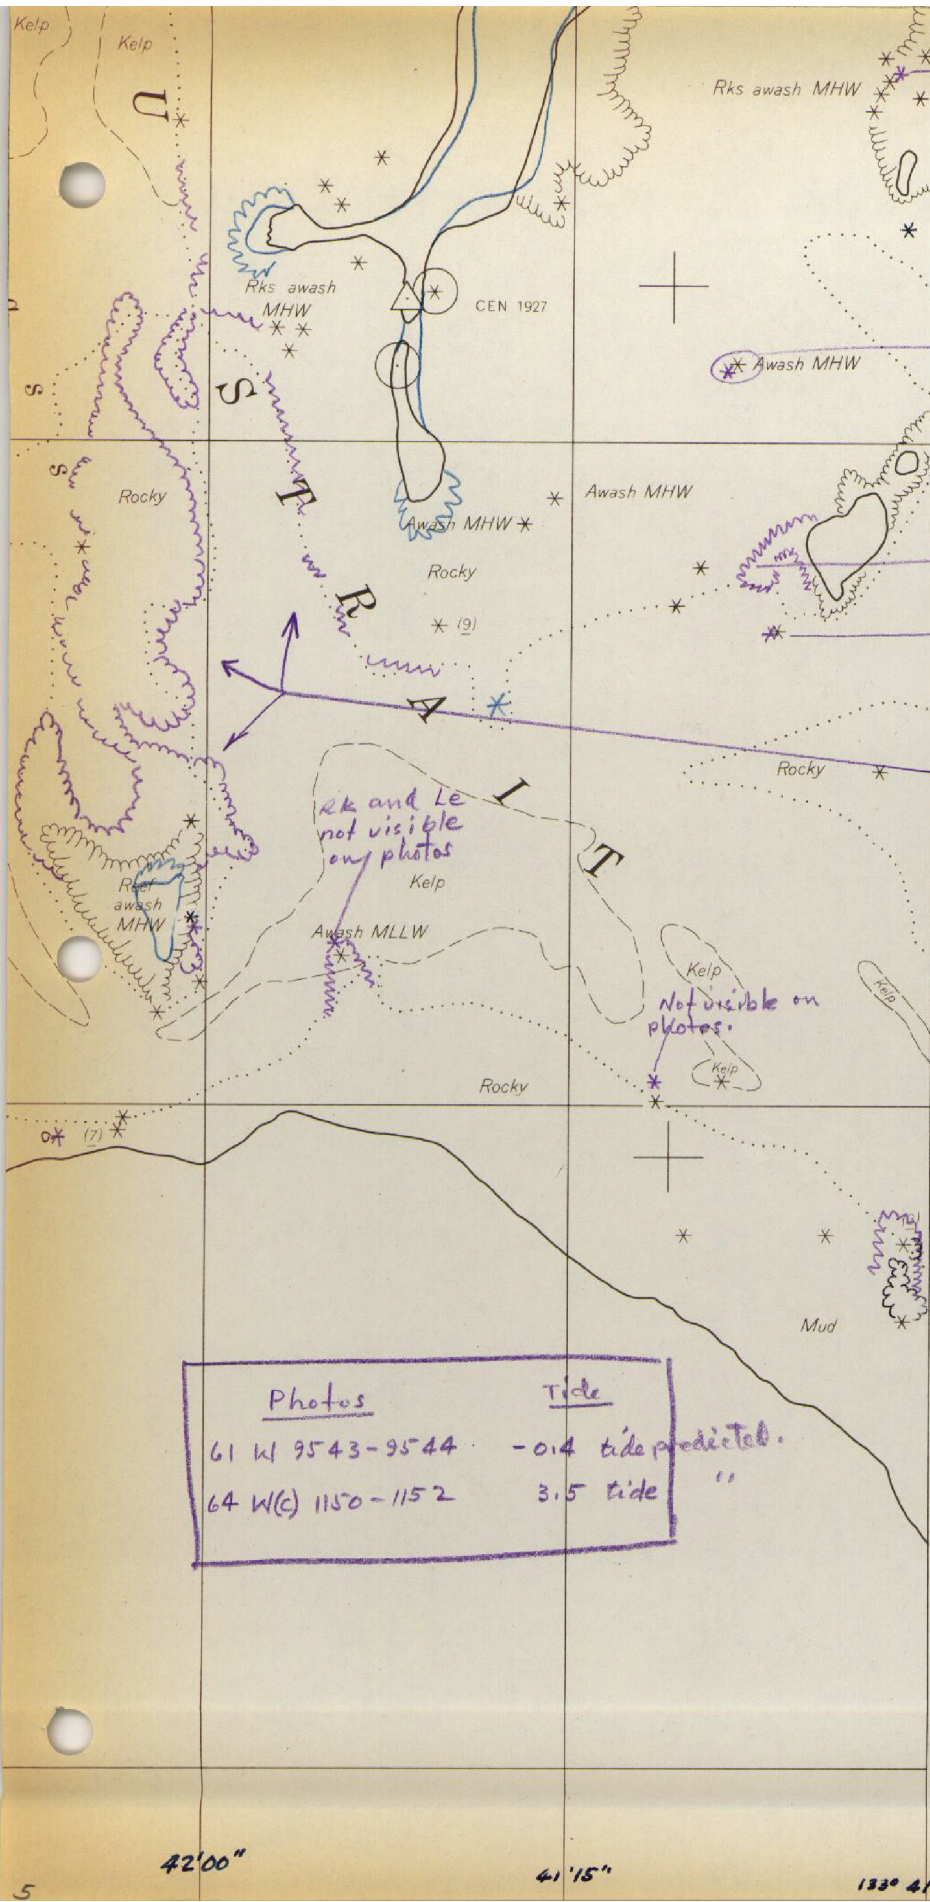 Kelp
Kelp
U
Rks awash MHW
Rks awash
MHW
CEN 1927
Awash MHW
S
S
S
T
Rocky
Awash MHW
Awash MHW
Rocky
R
(9)
A
Rocky
I
T
Rk and Le
not visible
on photos
Kelp
Reef
awash
MHW
Awash MLLW
Kelp
Kelp
Not visible on
photos.
Kelp
Rocky
(7)
Mud
Photos Tide
61 W 9543-9544 -0.4 tide predicted.
64 W(C) 1150-1152 3.5 tide "
42'00"
41'15"
133° 41
5